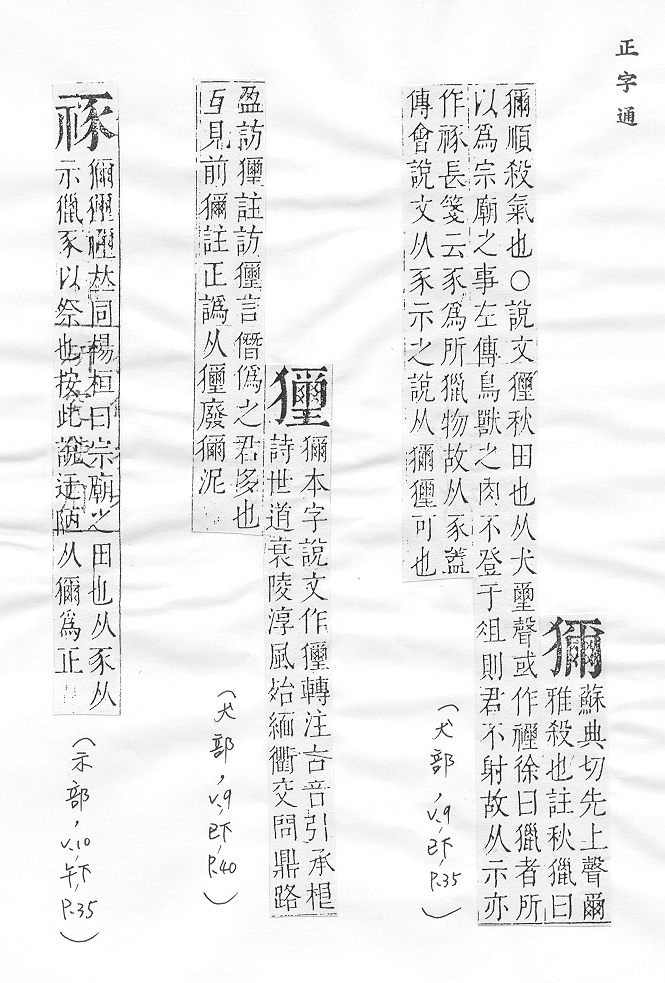 正字通
獮
蘇典切先上聲爾
雅殺也註秋獵曰
獮順殺氣也○說文秋田也从犬璽聲或作徐曰獵者所
以為宗廟之事左傳鳥獸之肉不登于俎則君不射故从示亦
作長箋云豕為所獵物故从豕蓋
傳會說文从豕示之說从獮可也
(犬部, V.9, 巳下, P.35)
獮本字說文作轉注古音引承柜
詩世道衰陵淳風始緬衢交問鼎路
盈訪註訪言僭偽之君多也
互見前獮註正譌从廢獮泥
(犬部, V.9, 巳下, P.40)
獮同楊桓曰宗廟之田也从豕从
示獵豕以祭也按此說迂陋从獮為正
(示部, V.10, 午下, P.35)